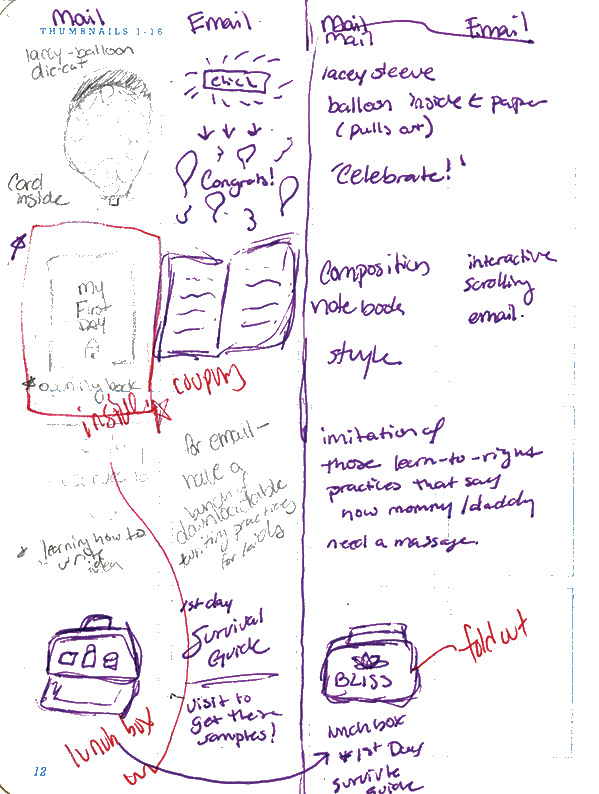 Mail
Email
THUMBNAILS 1-16
lacey-balloon
die-cut
Click
Congrats!
Card
inside
My
First
DAY
A
coupons
for email-
have a
bunch of
downloadable
writing practices
for kids
learning how to
write
idea
1st day
Survival
Guide
visit to
get these
samples!
lunch box
12
Mail
Mail
Email
lacey sleeve
balloon inside paper
(pulls out)
"Celebrate!"
Composition
notebook
style
interactive
scrolling
email.
imitation of
those learn-to-right
practices that say
now mommy/daddy
need a massage.
fold out
BLISS
lunchbox
*1st Day
guide